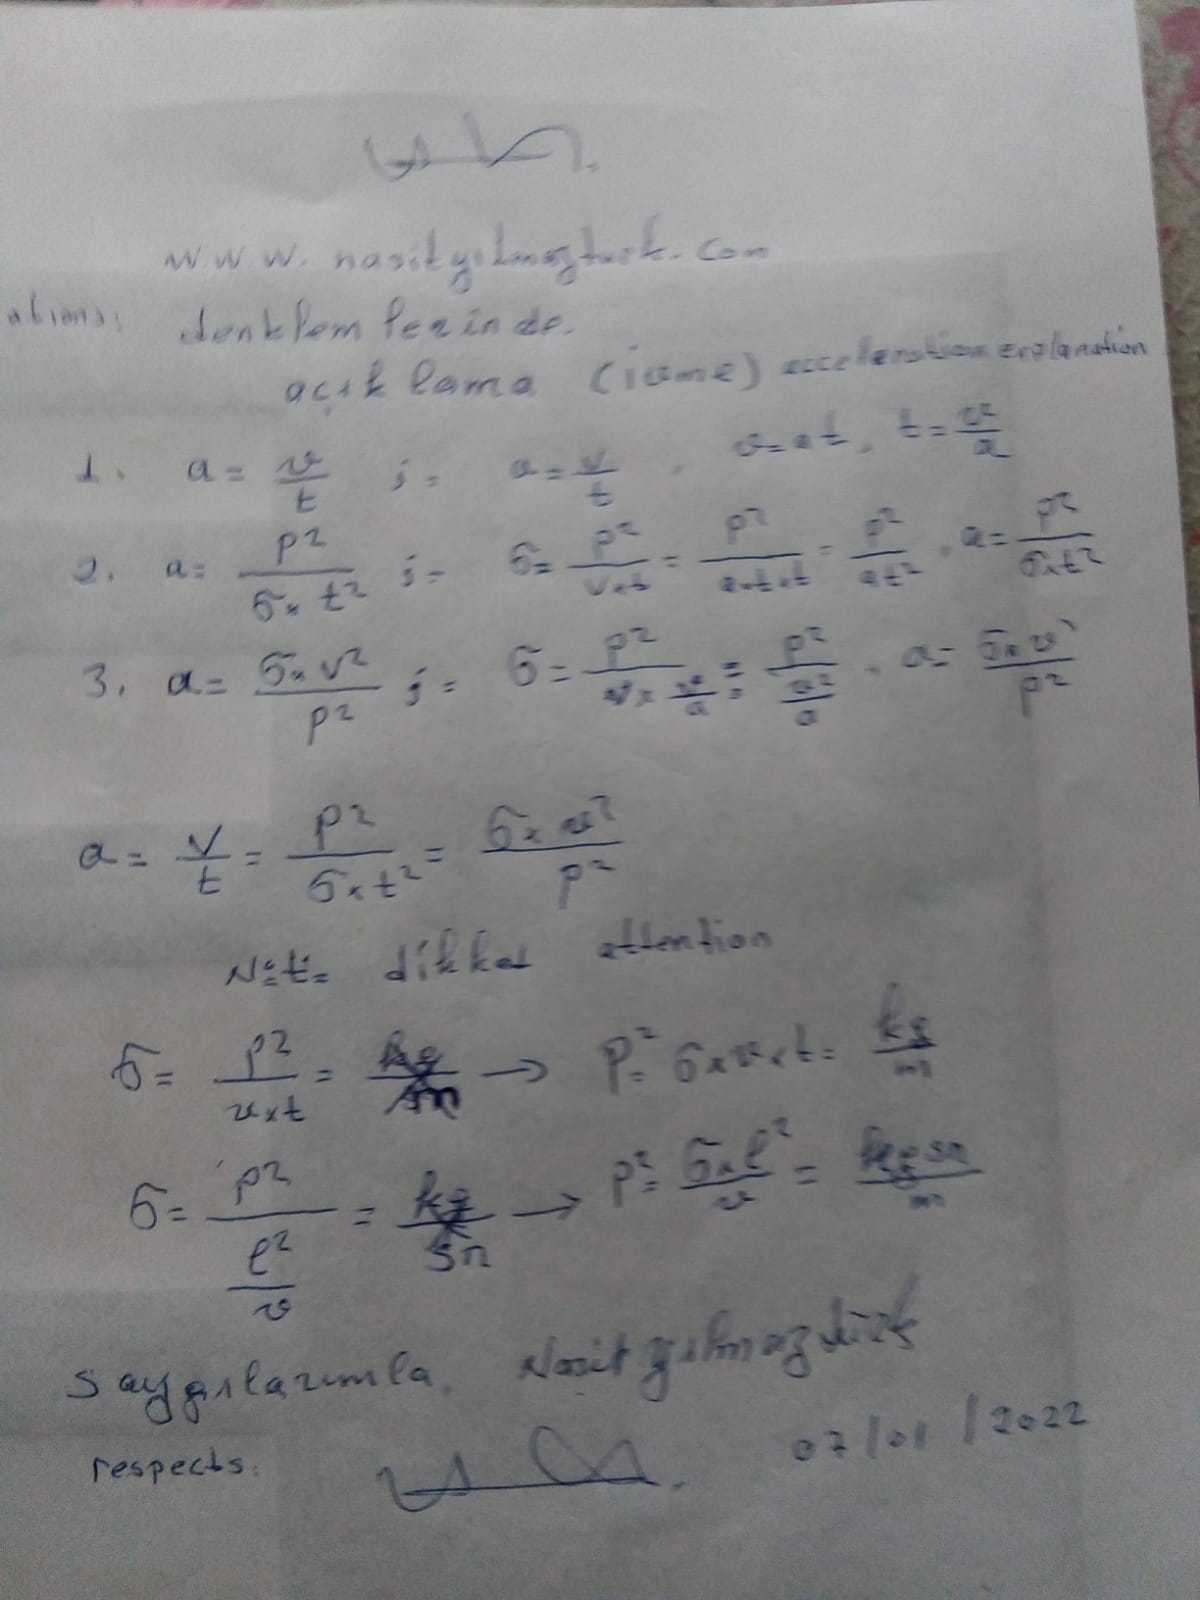 www.nasityılmazturk.com
denklemlerinde.
açıklama (ivme) acceleration explanation
1. a = v/t ; = a = v/t , v = at , t = v/a
2. a = p²/(σ×t²) ; = σ = p²/(v×t) = p²/(a×t×t) = p²/(at²) , a = p²/(σ×t²)
3. a = (σ×v²)/p² ; = σ = p²/(v×v/a) = p²/(v²/a) , a = (σ×v²)/p²
a = v/t = p²/(σ×t²) = (σ×v²)/p²
Not = dikkat attention
σ = p²/(v×t) = → p² = σ×v×t = kg/m
σ = p²/(ℓ²/v) = kg/sn → p² = (σ×ℓ²)/v = kg sn/m
saygılarımla. Nasit yılmaztürk
07/01/2022
respects.